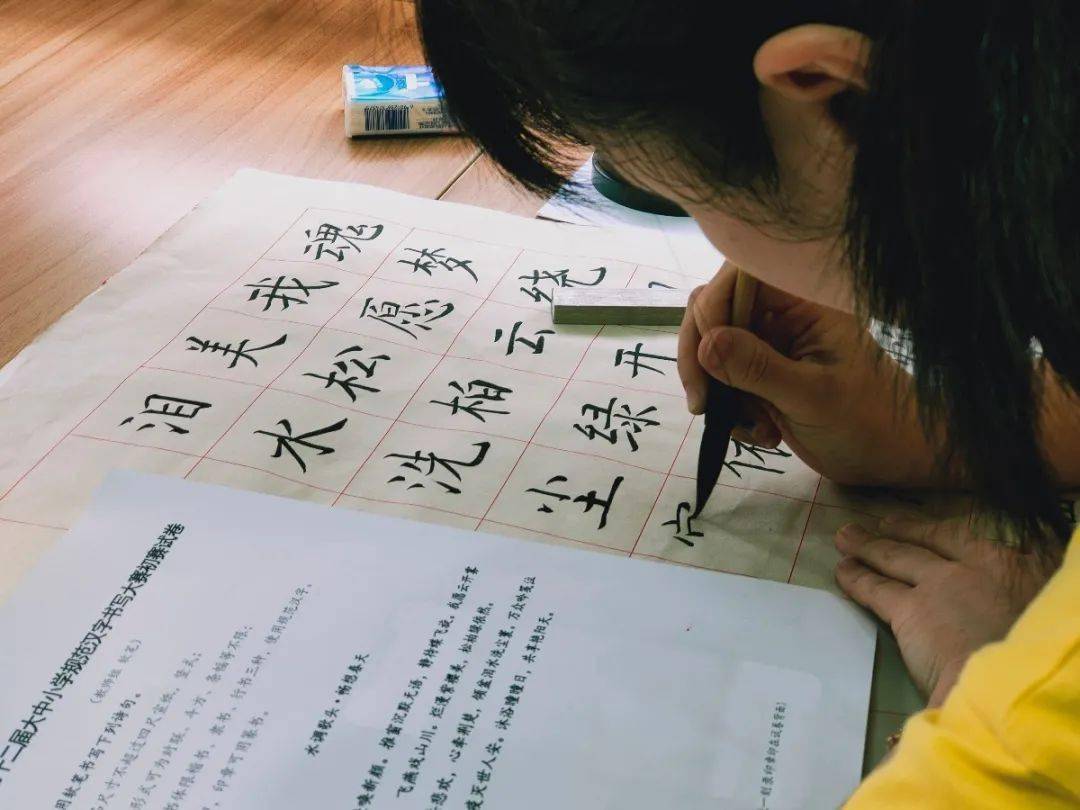 魂梦绕
我愿云开
美松柏绿依
泪水洗尘
二届大中小学规范汉字书写大赛初赛试卷
(教师组 软笔)
用软笔书写下列诗句。
尺寸不超过四尺宣纸,竖式;
形式可为对联、斗方、条幅等不限;
书体限楷书、隶书、行书三种,使用规范汉字。
,印章可用篆书。
水调歌头·畅想春天
唤新颜。推窗沉默无语,静待蝶飞 我愿云开雾
飞燕戏山川。烂漫紫樱美,松柏绿依然。
悲欢,心牵荆楚,倾盆泪水洗尘寰。万众
灭世人安。沐浴瞳瞳日,共享艳阳天。